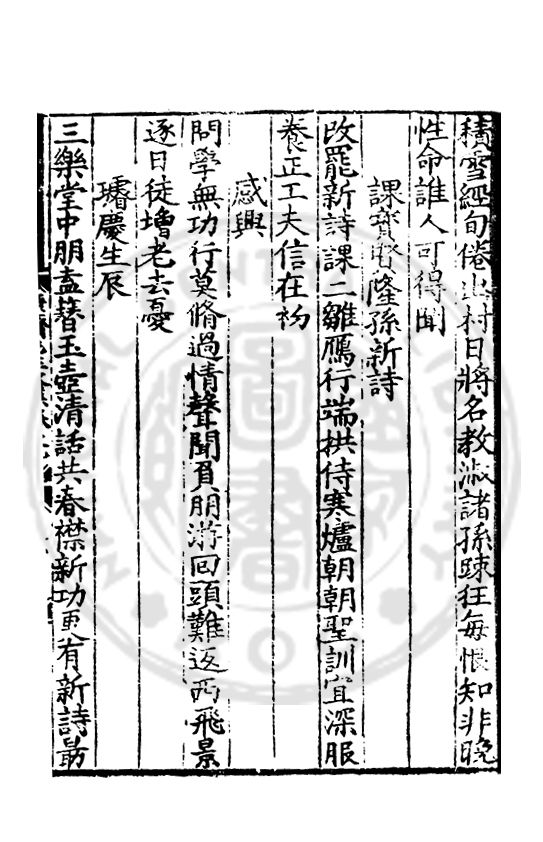 積雪經旬倦出村日將名教淑諸孫踈狂每恨知非晚
性命誰人可得聞
課寶賢隆孫新詩
改罷新詩課二雛鴈行端拱侍寒爐朝朝聖訓宜深服
養正工夫信在初
感興
問學無功行莫脩過情聲聞負朋游回頭難返西飛景
逐日徒增老去憂
璿慶生辰
三樂堂中朋盍簪玉壺清話共春襟新功更有新詩最